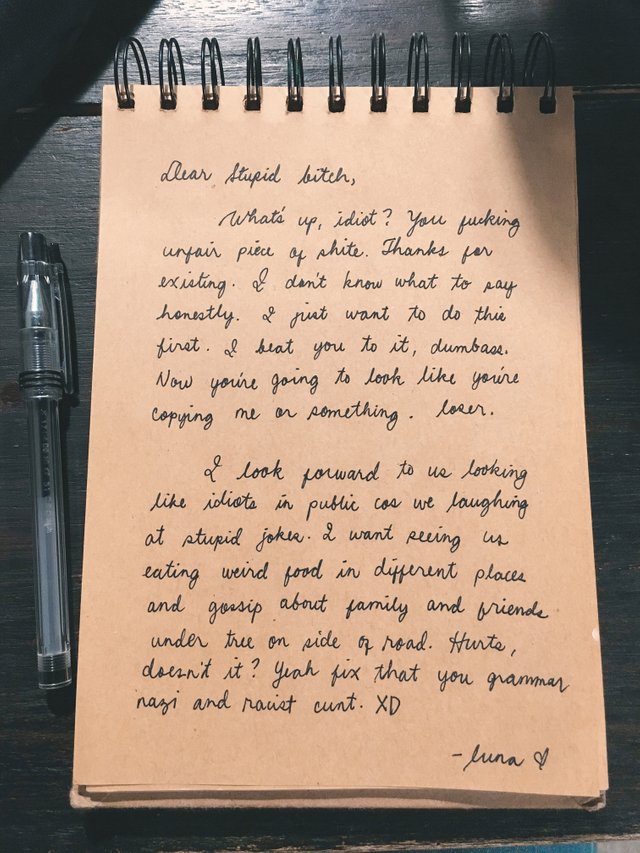 Dear Stupid bitch,
What's up, idiot? You fucking
unfair piece of shite. Thanks for
existing. I don't know what to say
honestly. I just want to do this
first. I beat you to it, dumbass.
Now you're going to look like you're
copying me or something. loser.
I look forward to us looking
like idiots in public cos we laughing
at stupid jokes. I want seeing us
eating weird food in different places
and gossip about family and friends
under tree on side of road. Hurts,
doesn't it? Yeah fix that you grammar
nazi and racist cunt. XD
- luna ♡